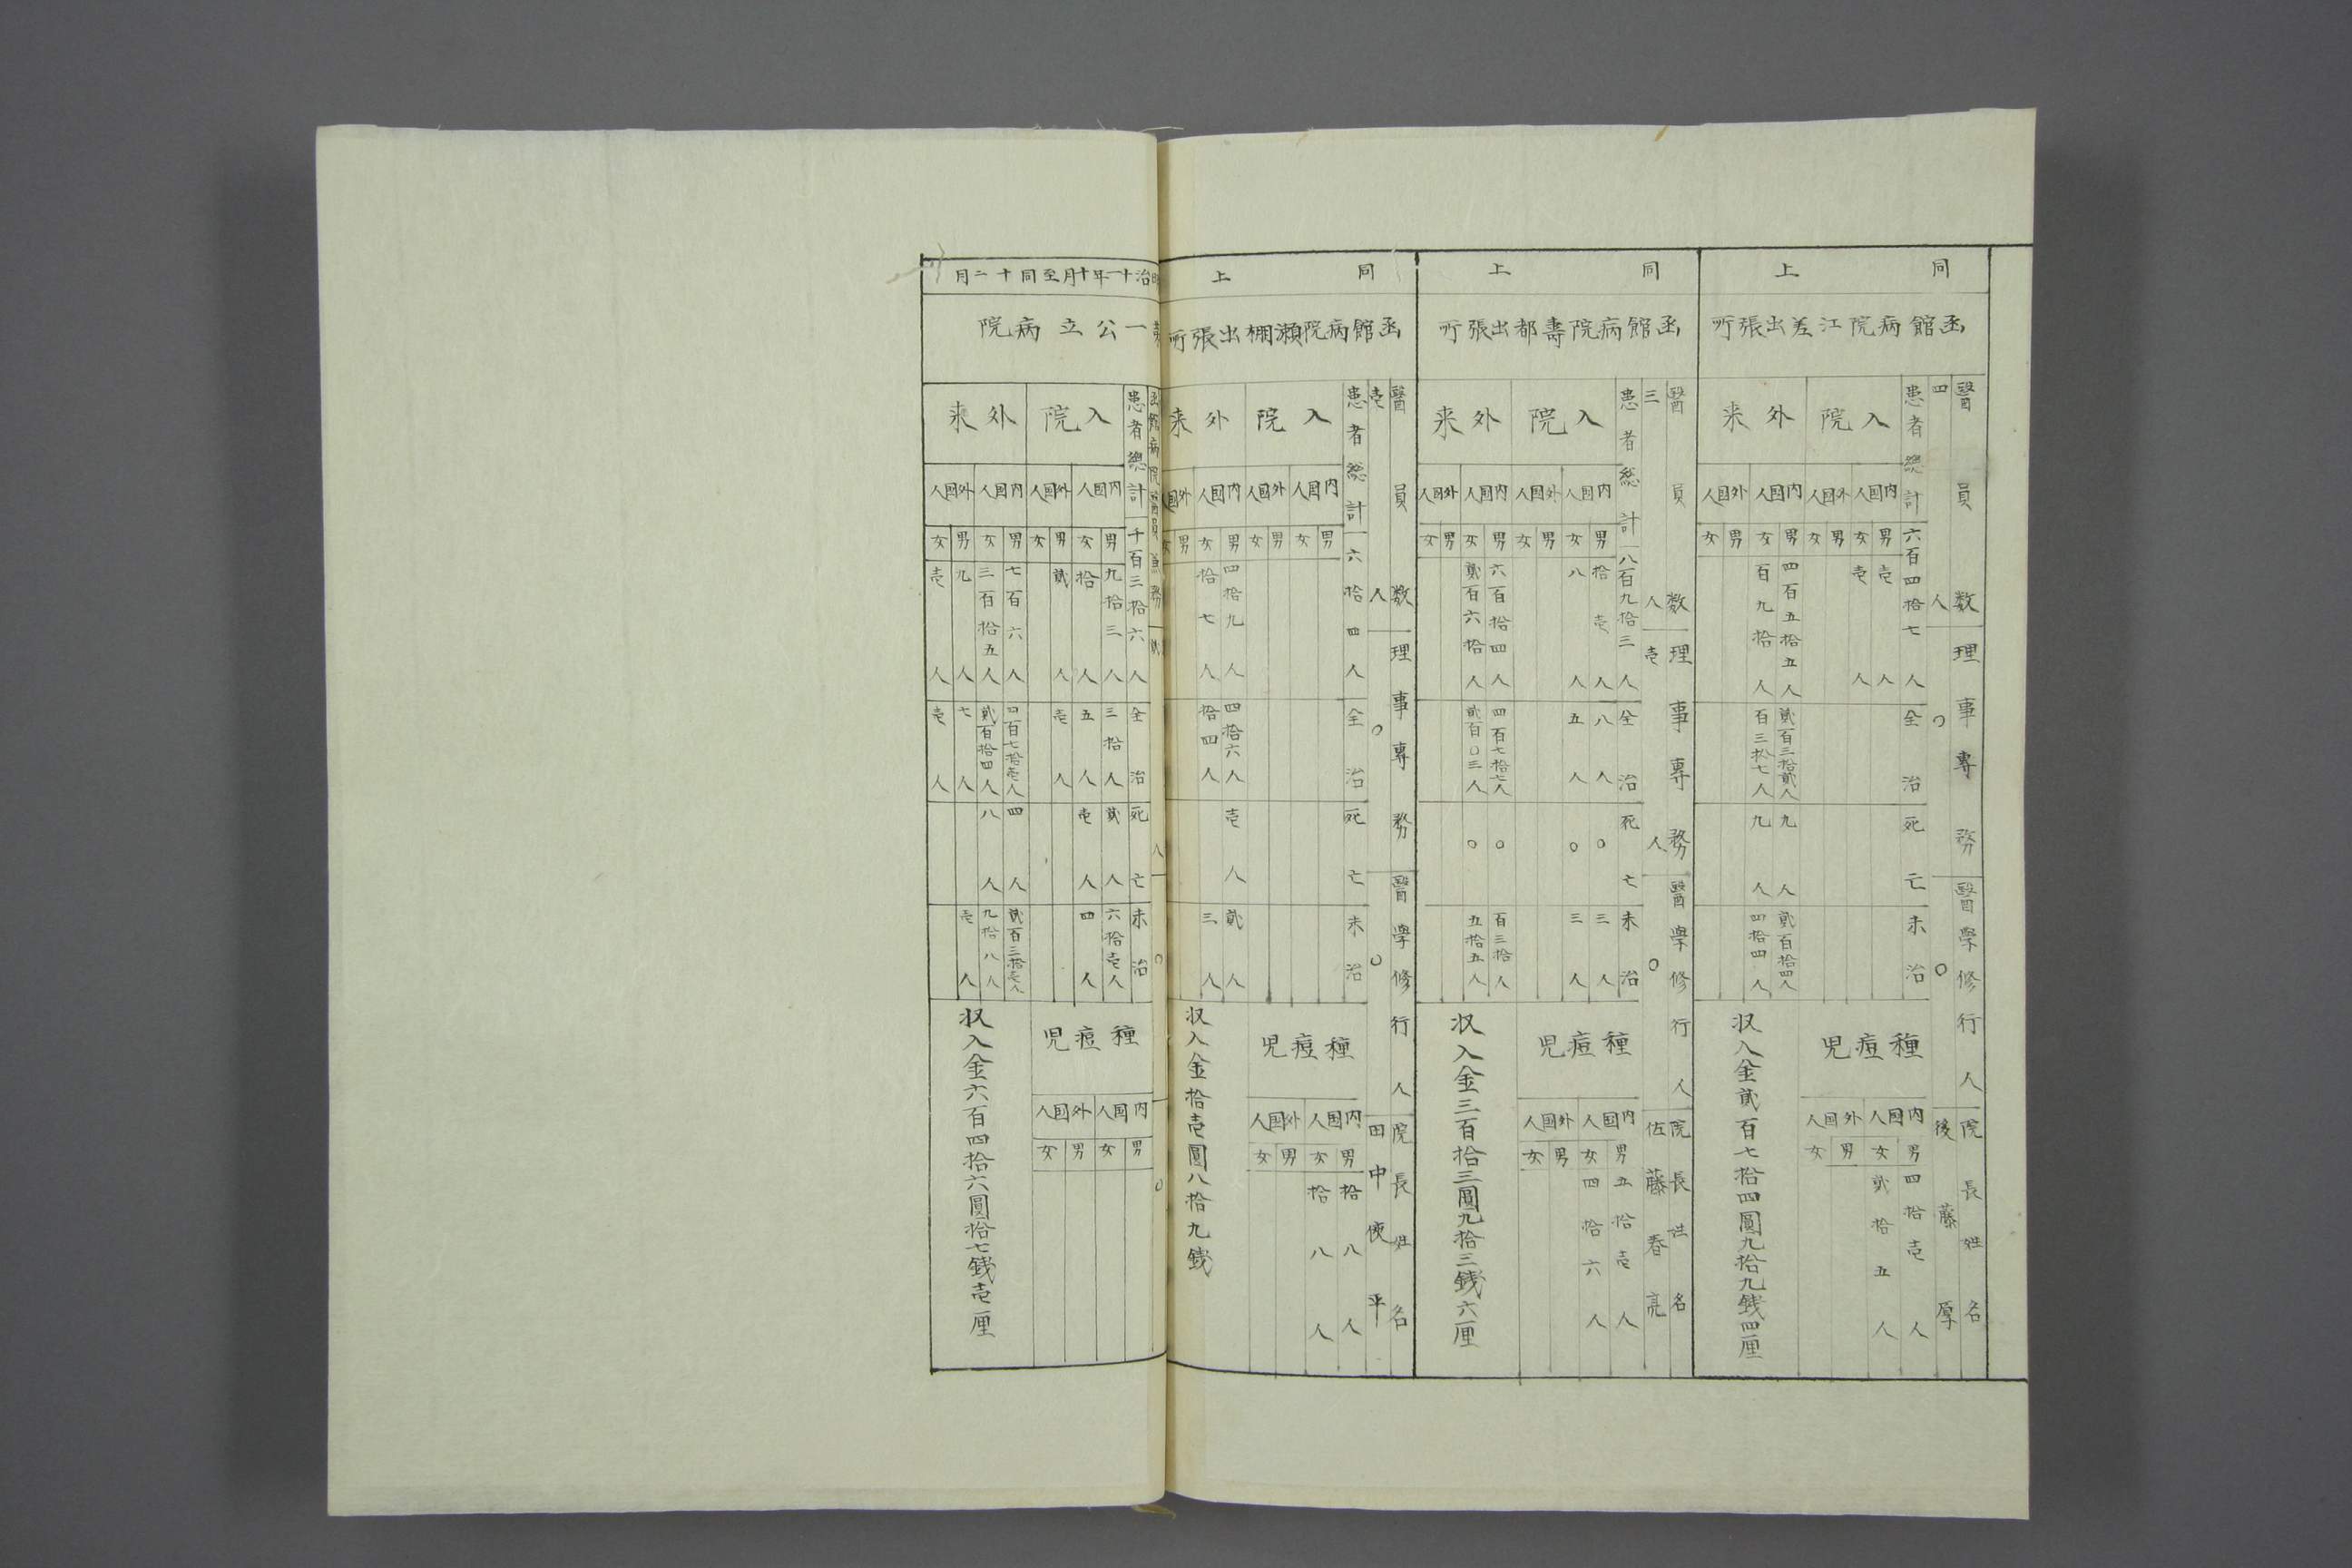 同上
函館病院江差出張所
醫員数
四人
理事専務
〇
醫学修行人
〇
院長姓名
後藤厚
患者総計
六百四拾七人
全治
死亡
未治
入院
内国人
男
壱人
女
壱人
外国人
男
女
外来
内国人
男
四百五拾五人
貳百三拾貳人
九人
貳百拾四人
女
百九拾人
百三拾七人
九人
四拾四人
外国人
男
女
種痘児
内国人
男
四拾壱人
女
貳拾五人
外国人
男
女
収入金貳百七拾四圓九拾九銭四厘
同上
函館病院壽都出張所
醫員数
三人
理事専務
壱人
醫学修行人
〇
院長姓名
佐藤春亮
患者総計
八百九拾三人
全治
死亡
未治
入院
内国人
男
拾壱人
八人
〇
三人
女
八人
五人
〇
三人
外国人
男
女
外来
内国人
男
六百拾四人
四百七拾七人
〇
百三拾人
女
貳百六拾人
貳百〇三人
〇
五拾五人
外国人
男
女
種痘児
内国人
男
五拾壱人
女
四拾六人
外国人
男
女
収入金三百拾三圓九拾三銭六厘
同上
函館病院瀬棚出張所
醫員数
壱人
理事専務
〇
醫学修行人
〇
院長姓名
田中使平
患者総計
六拾四人
全治
死亡
未治
入院
内国人
男
女
外国人
男
女
外来
内国人
男
四拾九人
四拾六人
壱人
貳人
女
拾七人
拾四人
三人
外国人
男
女
種痘児
内国人
男
拾八人
女
拾八人
外国人
男
女
収入金拾壱圓八拾九銭
明治十一年十月至同十二月
第一公立病院
函館病院醫員兼務
貳人
〇
〇
患者総計
千百三拾六人
全治
死亡
未治
入院
内国人
男
九拾三人
三拾人
貳人
六拾壱人
女
拾人
五人
壱人
四人
外国人
男
貳人
壱人
女
外来
内国人
男
七百六人
四百七拾壱人
四人
貳百三拾壱人
女
三百拾五人
貳百拾四人
八人
九拾八人
外国人
男
九人
七人
壱人
女
壱人
壱人
種痘児
内国人
男
女
外国人
男
女
収入金六百四拾六圓拾七銭壱厘